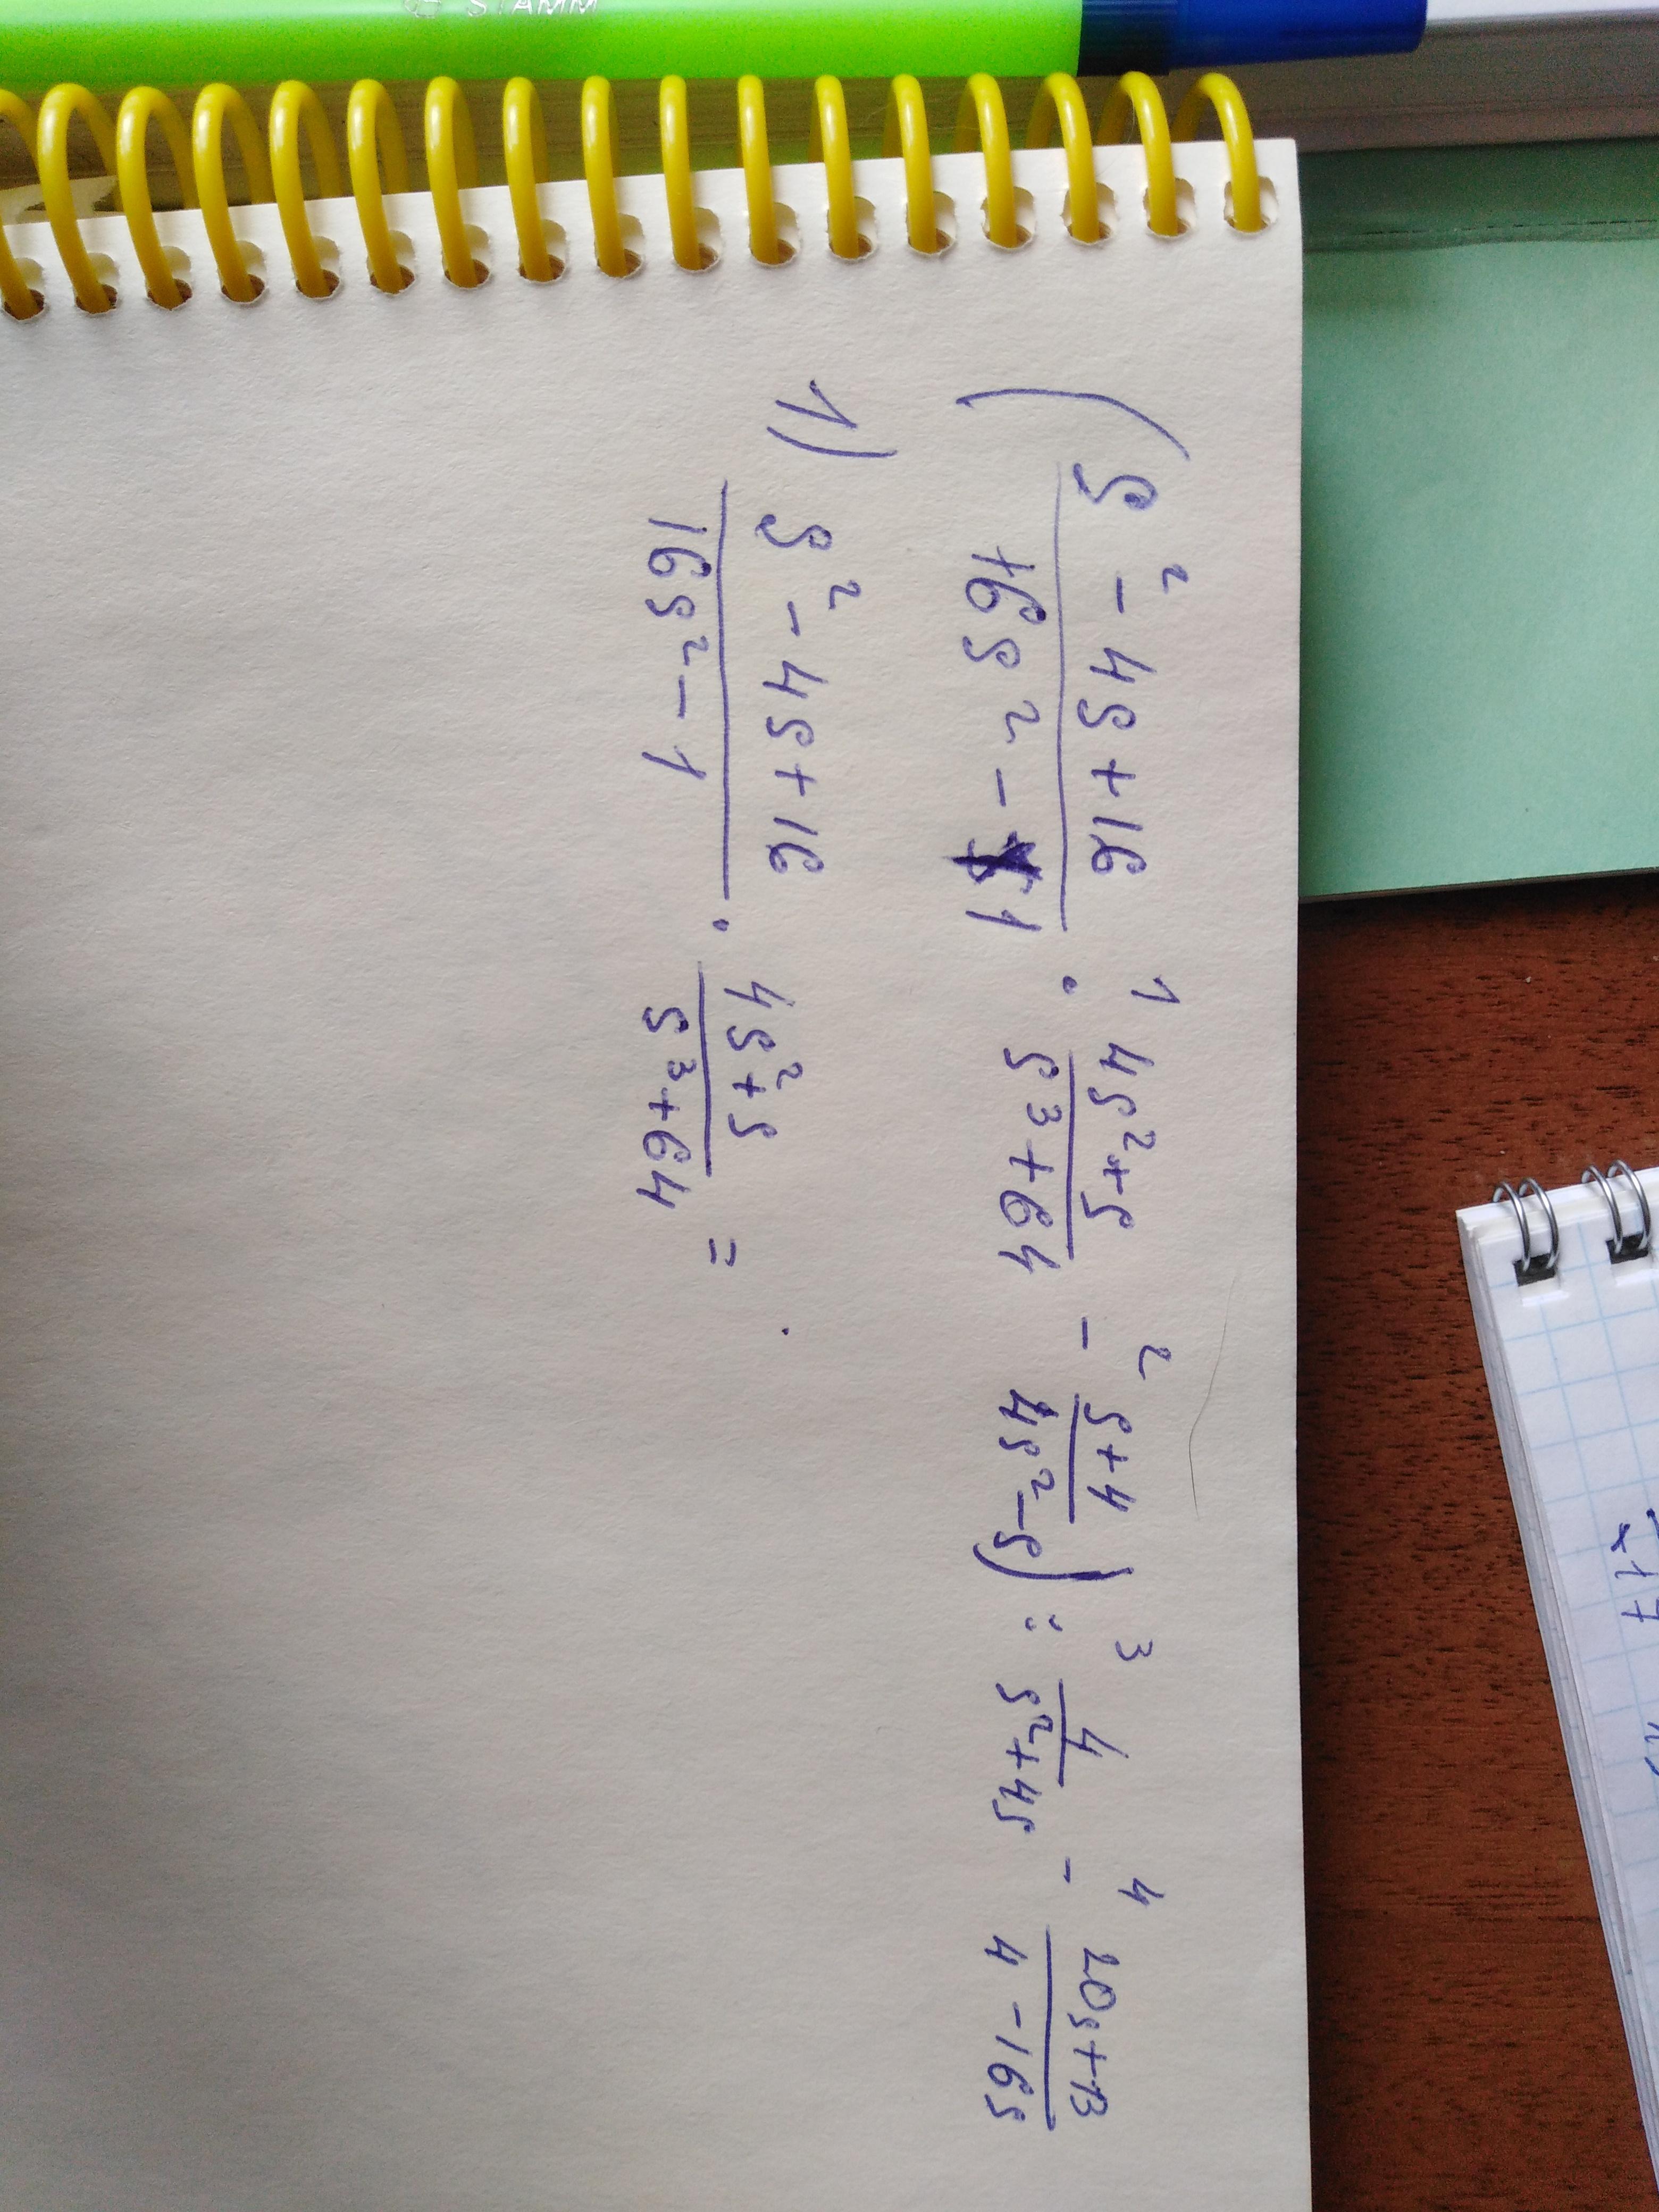 STAMM
(s² - 4s + 16)/(16s² - 1) · (4s² + s)/(s³ + 64) - (s + 4)/(4s² - s)) : 4/(s² + 4s) - (20s + 13)/(4 - 16s)
1 2 3 4
1) (s² - 4s + 16)/(16s² - 1) · (4s² + s)/(s³ + 64) =